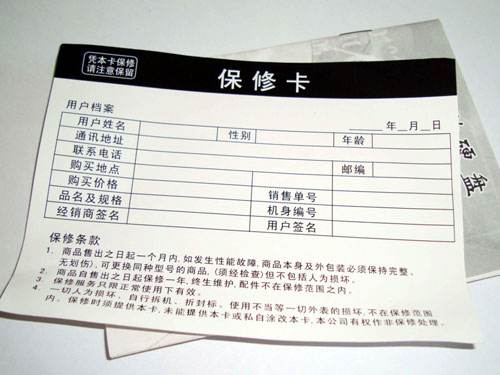 凭本卡保修
请注意保留
保修卡
用户档案
年__月__日
用户姓名 性别 年龄
通讯地址
联系电话 邮编
购买地点
购买价格 销售单号
品名及规格 机身编号
经销商签名 用户签名
保修条款
1、商品售出之日起一个月内,如发生性能故障,商品本身及外包装必须保持完整、
无划伤、可更换同种型号的商品,(须经检查)但不包括人为损坏.
2、商品自售出之日起保修一年,终生维护,配件不在保修范围之内.
3、保修服务只限正常使用下有效。
4、一切人为损坏、自行拆机、折封标、使用不当等一切外表的损坏,不在保修范围
内。保修时须提供本卡,未能提供本卡或私自涂改本卡,本公司有权作非保修处理。
硬盘